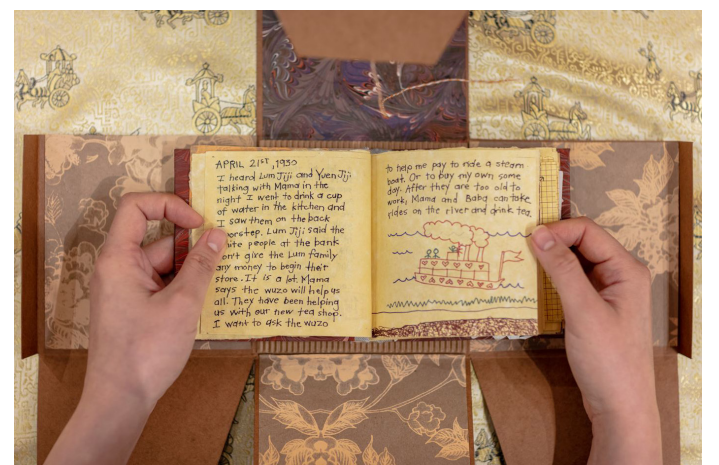 APRIL 21ST, 1930
I heard Lum Jiji and Yuen Jiji
talking with Mama in the
night I went to drink a cup
of water in the kitchen and
I saw them on the back
doorstep. Lum Jiji said the
white people at the bank
won't give the Lum family
any money to begin their
store. It is a lot. Mama
says the wuzo will help us
all. They have been helping
us with our new tea shop.
I want to ask the wuzo
to help me pay to ride a steam
boat. Or to buy my own some
day. After they are too old to
work, Mama and Baba can take
rides on the river and drink tea.